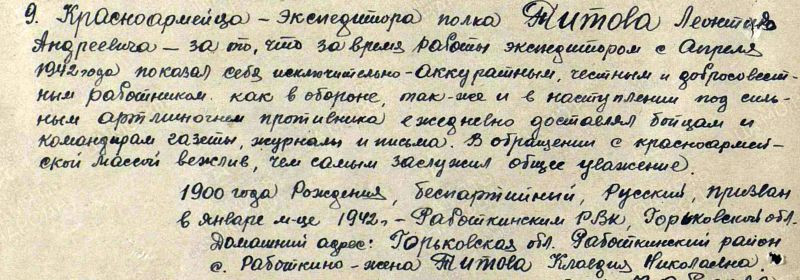 9. Красноармейца - экспедитора полка Титова Леонтия
Андреевича - за то, что за время работы экспедитором с Апреля
1942 года показал себя исключительно-аккуратным, честным и добросовест-
ным работником. как в обороне, так-же и в наступлении под силь-
ным артлиногнем противника ежедневно доставлял бойцам и
командирам газеты, журналы и письма. В обращении с красноармей-
ской массой вежлив, чем самым заслужил общее уважение.
1900 года Рождения, беспартийный, Русский, призван
в январе м-це 1942г. - Работкинским РВК, Горьковской обл.
Домашний адрес: Горьковская обл. Работкинский район
с. Работкино - жена Титова Клавдия Николаевна.